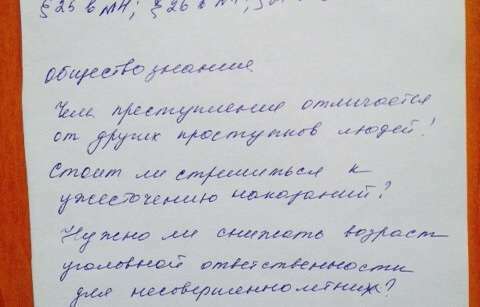 § 25 в
обществознания
Чем преступления отличается
от других проступков людей!
Стоит ли стремиться к
ужесточению наказаний?
Нужно ли снижать возраст
уголовной ответственности
для несовершеннолетних?